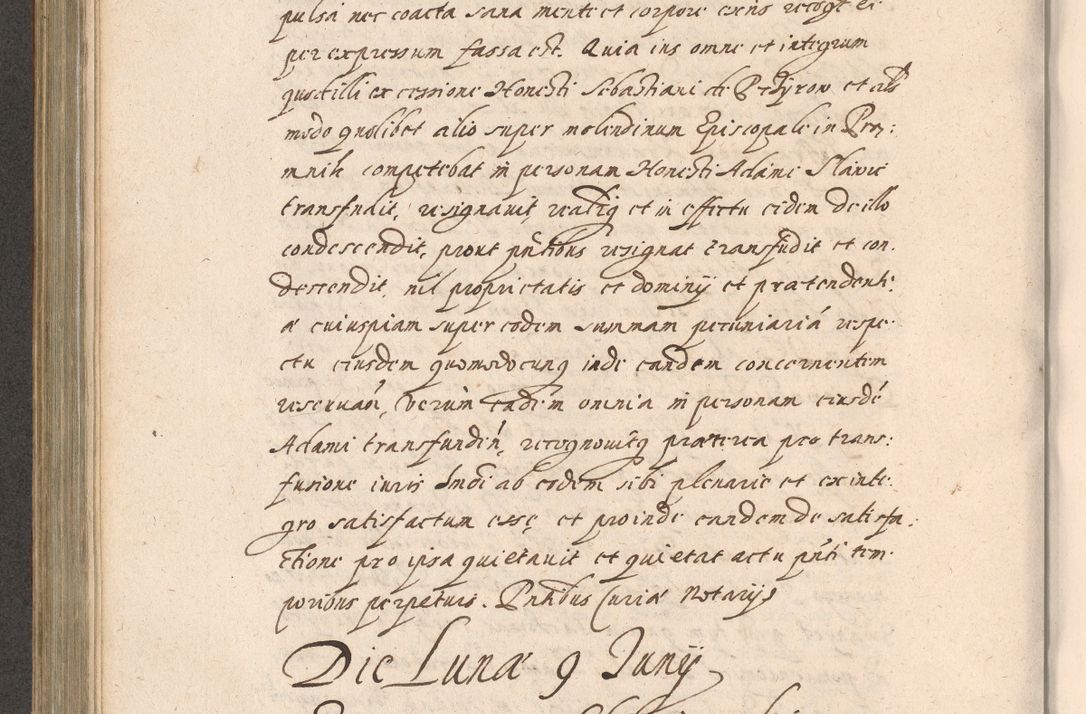 pulsa nec coacta sana mente et corpore exēns recogt et
per expressum fassa est. Quia ius omne et integrum
quod illi ex cessione Honesti Sebastiani de et alō
modo quolibet alio super molendinum Episcopale in
mnik competebat in personam Honesti Adami Slawic
transfudit, resignavit, realitꝗ et in effectu eidem de illo
condescendit, prout pn̄tibus resignat transfudit et con.
descendit, nil proprietatis et dominij et prætendenti.
æ cuiuspiam super eodem summam pecuniariā respe.
ctu eiusdem quomodocunꝗ inde eandem concernentem
reservań, verum eadem omnia in personam eiusdē
Adami transfundeń, recognovitꝗ præterea pro trans:
fusione iuris hmōi ab eodem sibi plenarie et ex inte.
gro satisfactum esse, et proinde eundem de satisfa.
ctione pro ipsa quietavit et quietat actu pn̄ti tem.
poribus perpetuis. Pn̄tibus Curiæ Notarijs
Die Lunæ 9 Junij